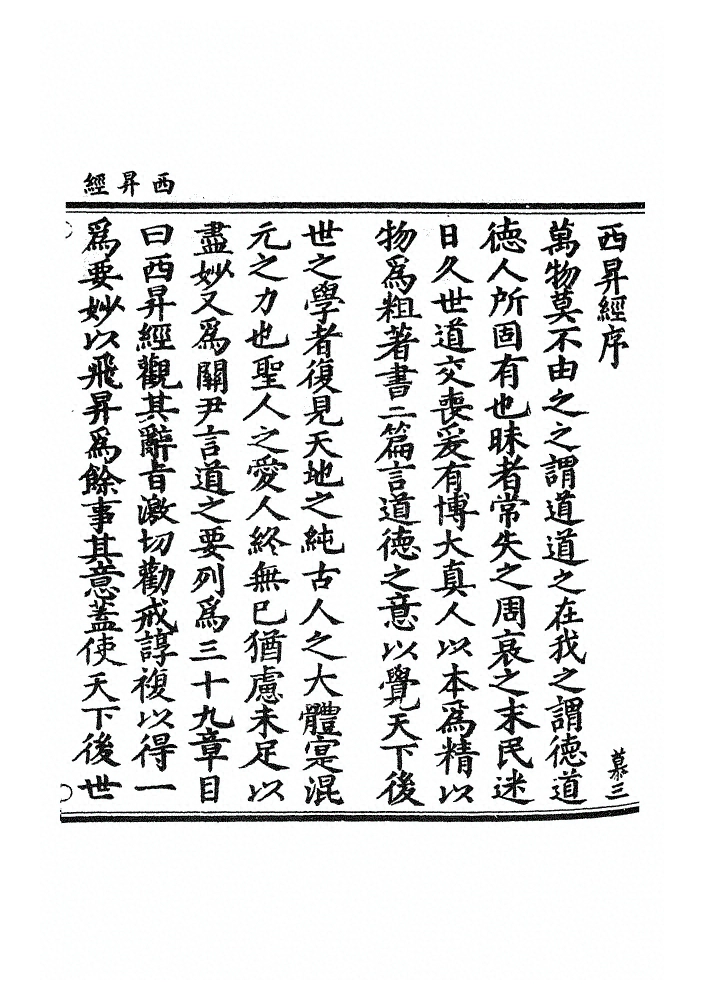 西昇經
西昇經序
慕三
萬物莫不由之之謂道道之在我之謂德道
德人所固有也昧者常失之周衰之末民迷
日久世道交喪爰有博大真人以本爲精以
物爲粗著書二篇言道德之意以覺天下後
世之學者復見天地之純古人之大體寔混
元之力也聖人之愛人終無已猶慮未足以
盡妙又爲關尹言道之要列爲三十九章目
曰西昇經觀其辭旨激切勸戒諄複以得一
爲要妙以飛昇爲餘事其意蓋使天下後世